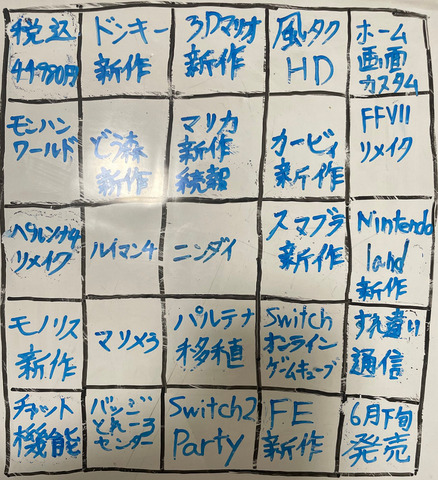 税込
44980円
ドンキー
新作
3Dマリオ
新作
風タク
HD
ホーム
画面
カスタム
モンハン
ワールド
ど森
新作
マリカ
新作
続報
カービィ
新作
FFVII
リメイク
ペルソナ4
リメイク
ルイマン4
ニンダイ
スマブラ
新作
Nintendo
land
新作
モノリス
新作
マリメ3
パルテナ
移植
Switch
オンライン
ゲームキューブ
すれ違い
通信
チャット
機能
バンジ
どれーろ
センター
Switch2
Party
FE
新作
6月下旬
発売